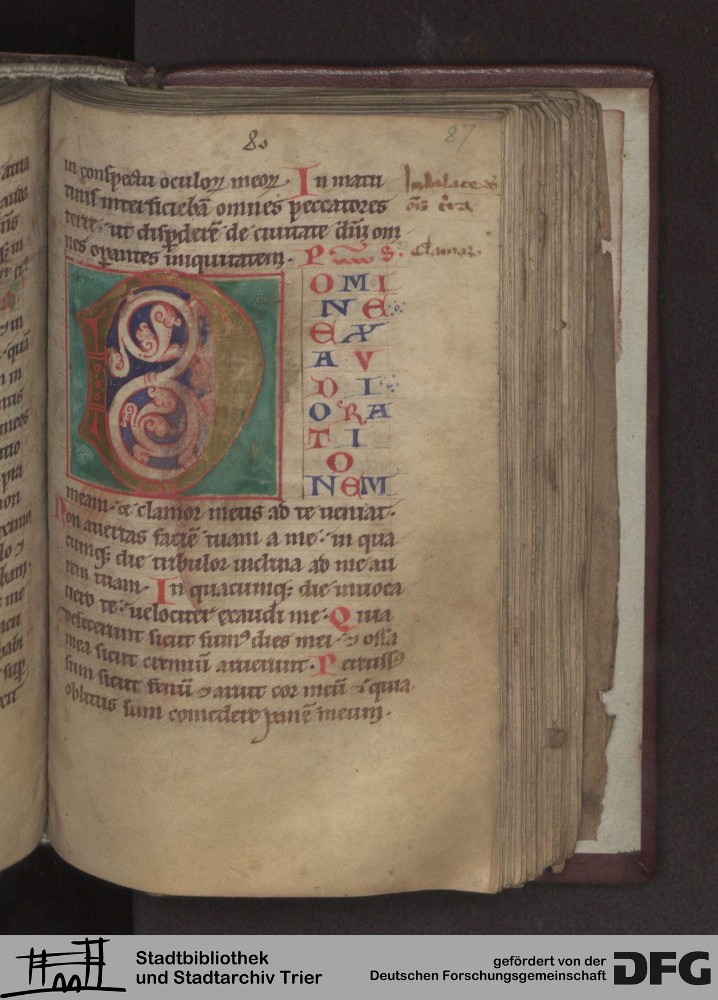 8.
87
in conspectu oculoꝝ meoꝝ. In matu
tinis interficiebā omnes peccatores
terre. ut disꝑderē de ciuitate dn̄i om
nes oꝑantes iniquitatem. P S.
Clamor
D
OMI
NE
EX
A V
D I
O RA
T I
O
NEM
meam. & clamor meus ad te ueniat.
Non auertas faciē tuam a me. in qua
cumq; die tribulor inclina ad me au
rem tuam. In quacumq; die inuoca
uero te. uelociter exaudi me. Quia
defecerunt sicut fumꝰ dies mei. ⁊ ossa
mea sicut cremiū aruerunt. Percuss
sum sicut fenū ⁊ aruit cor meū. quia
oblitus sum comedere panē meum.
Stadtbibliothek
und Stadtarchiv Trier
gefördert von der
Deutschen Forschungsgemeinschaft
DFG